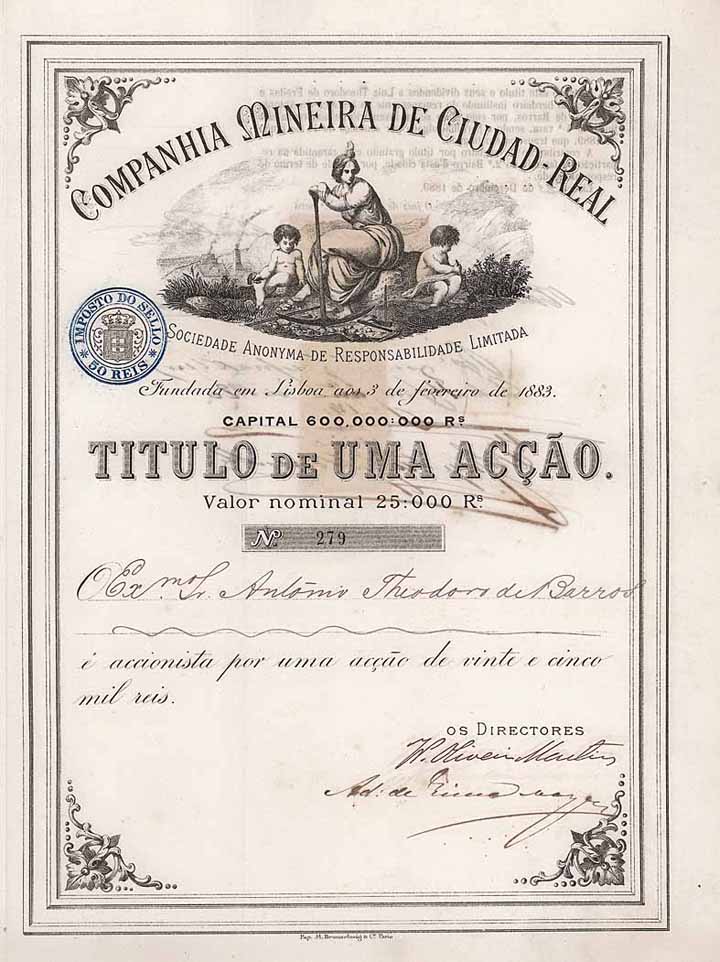 COMPANHIA MINEIRA DE CIUDAD-REAL
IMPOSTO DO SELLO
50 REIS
SOCIEDADE ANONYMA DE RESPONSABILIDADE LIMITADA
Fundada em Lisboa aos 3 de fevereiro de 1883.
CAPITAL 600,000:000 Rs
TITULO DE UMA ACÇÃO.
Valor nominal 25:000 Rs.
No. 279
O Exmo Sr. António Theodoro de Barros
é accionista por uma acção de vinte e cinco
mil reis.
OS DIRECTORES
W. Oliveira Martins
Ad: de Lima